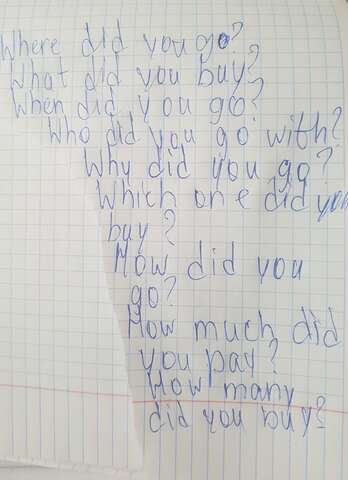 Where did you go?
What did you buy?
When did you go?
Who did you go with?
Why did you go?
Which one did you
buy?
How did you
go?
How much did
you pay?
How many
did you buy?